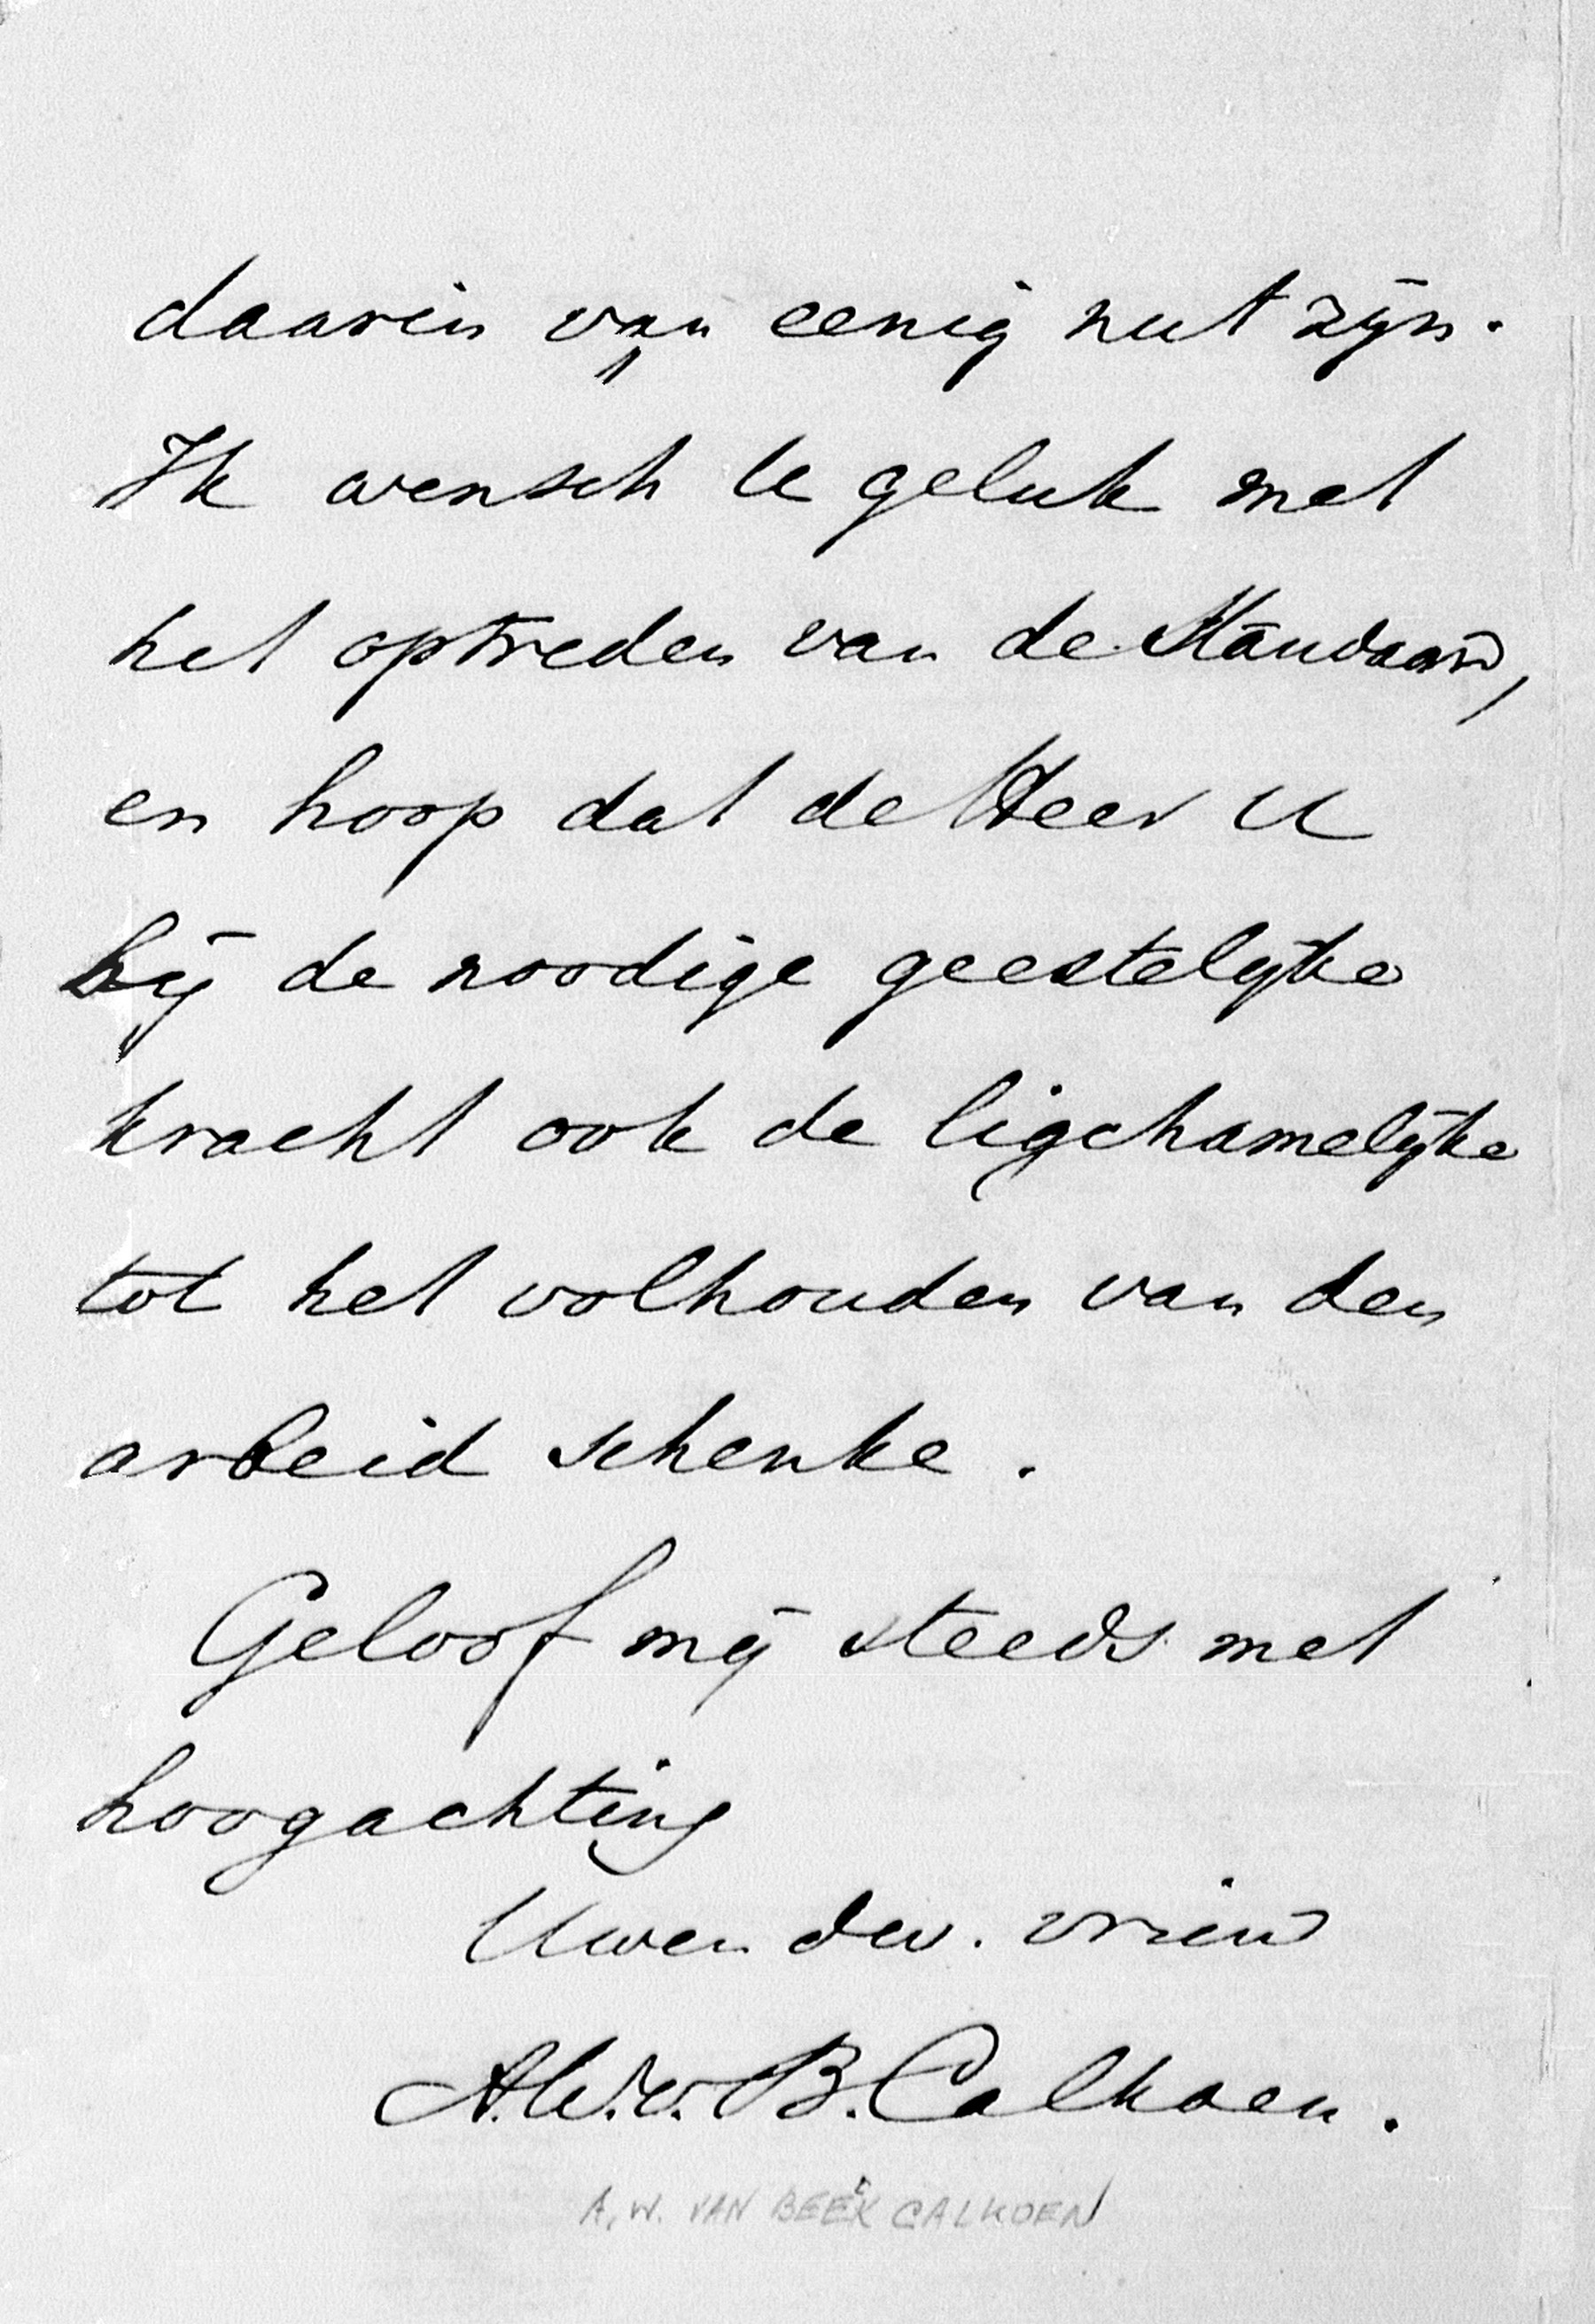 daarin van eenig nut zijn.
Ik wensch U geluk met
het optreden van de Standaard,
en hoop dat de Heer U
bij de noodige geestelijke
kracht ook de ligchamelijke
tot het volhouden van den
arbeid schenke.
Geloof mij steeds met
hoogachting
Uwen dw. vriend
A.W.v.B.Calkoen.
A.W. VAN BEECK CALKOEN